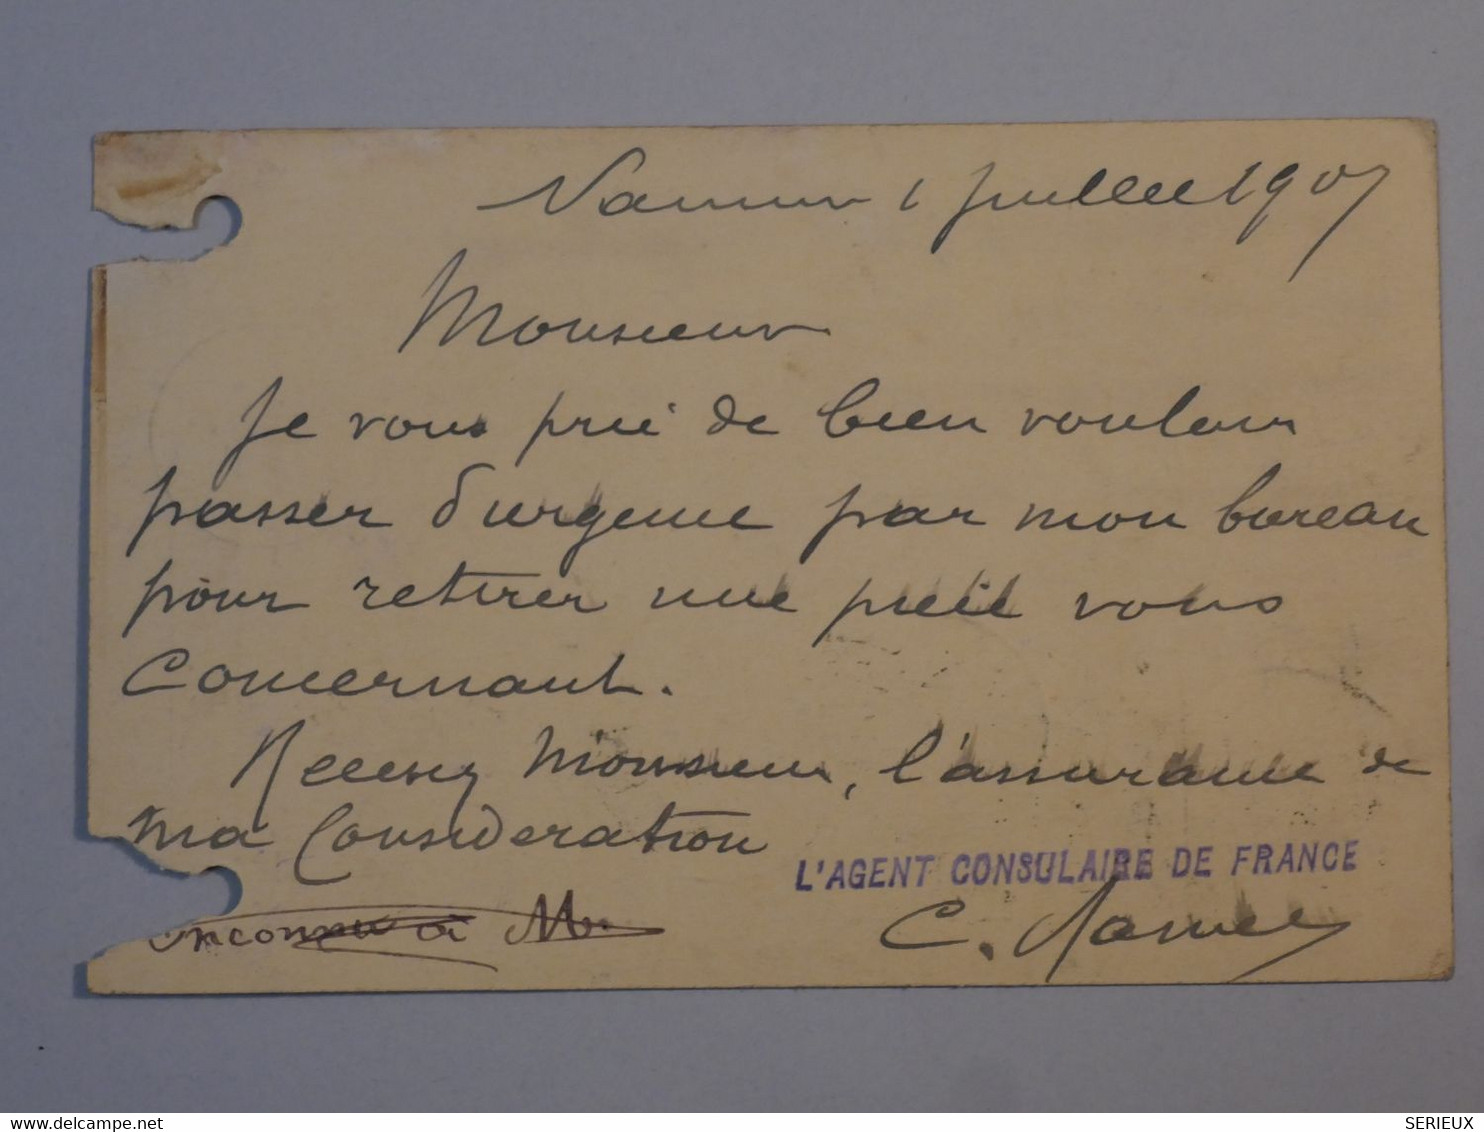 Namur 1 juillet 1907
Monsieur
Je vous prie de bien vouloir
passer d'urgence par mon bureau
pour retirer une pièce vous
Concernant.
Recevez Monsieur, l'assurance de
ma Consideration
L'AGENT CONSULAIRE DE FRANCE
inconnu à
C.
www.delcampe.net
SERIEUX